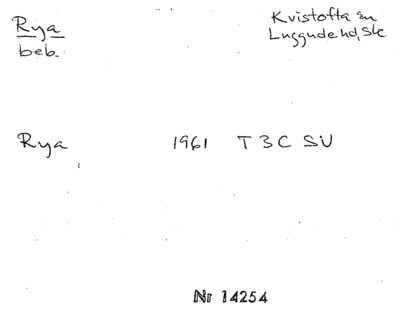 Rya
beb.
Kvistofta sn
Luggude hd, Sk.
Rya 1961 T 3 C SV
Nr 14254